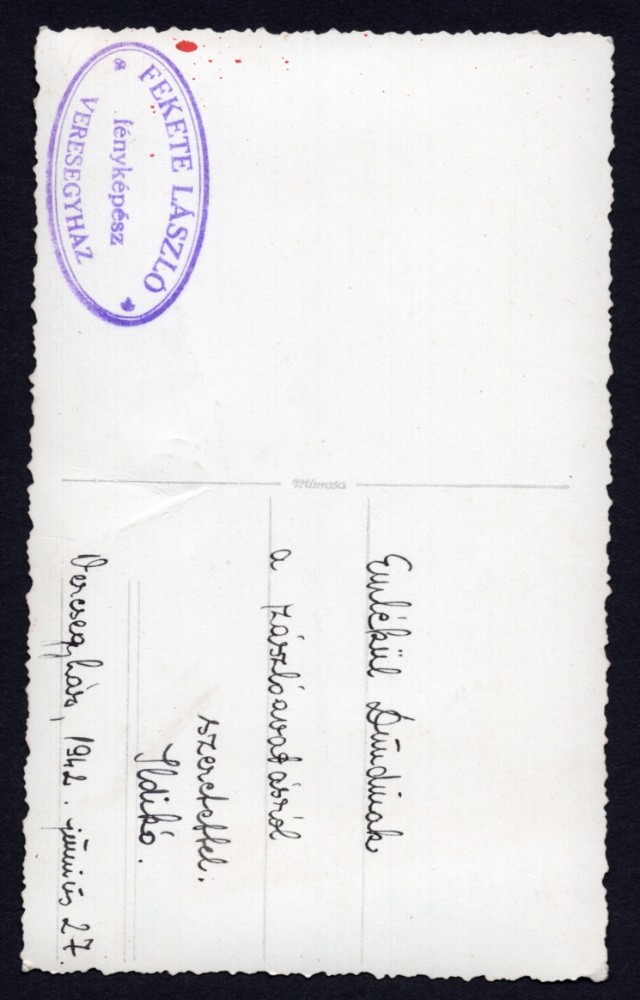 FEKETE LÁSZLÓ
fényképész
VERESEGYHÁZ
Mimosa
Emlékül Dundinak
a zászlóavatásról
szeretettel.
Ildikó.
Veresegyház, 1942. június 27.